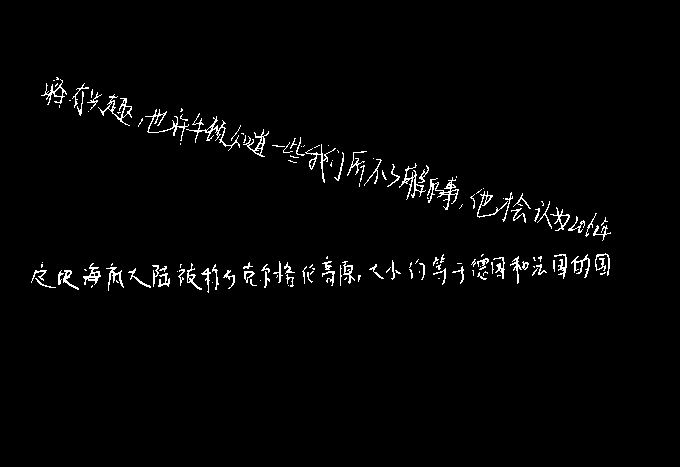 将有兴趣,也许牛顿知道一些我们所不了解的事,他才会认为2060年
定电海底大陆被称为克尔格伦高原,大小约等于德国和法国的国